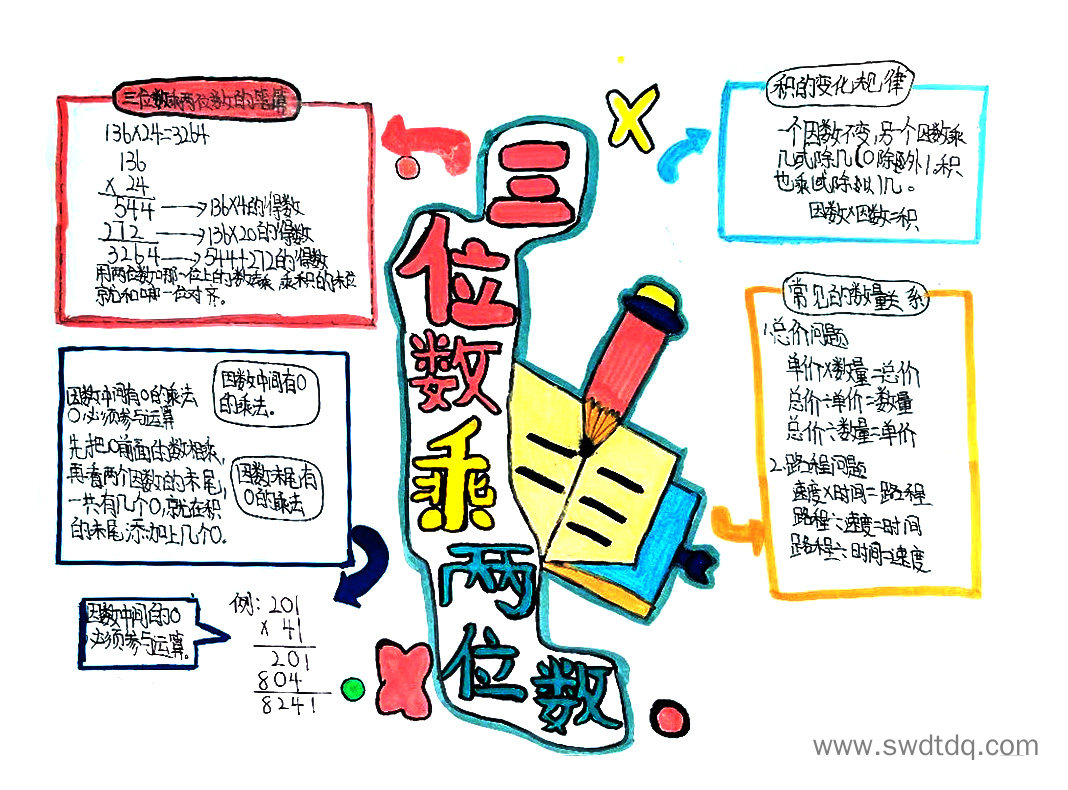 三位数乘两位数
三位数乘两位数的笔算
136×24=3264
136
× 24
544 → 136×4的得数
272 → 136×20的得数
3264 → 544+272的得数
用两位数哪一位上的数去乘,乘积的末位
就和哪一位对齐。
因数中间有0的乘法
0必须参与运算
因数中间有0
的乘法。
先把0前面的数相乘,
再看两个因数的末尾,
一共有几个0,就在积
的末尾添加上几个0。
因数末尾有
0的乘法
因数中间的0
必须参与运算。
例:201
× 41
201
804
8241
积的变化规律
一个因数不变,另一个因数乘
几或除几(0除外),积
也乘或除以几。
因数×因数=积
常见的数量关系
1.总价问题
单价×数量=总价
总价÷单价=数量
总价÷数量=单价
2.路程问题
速度×时间=路程
路程÷速度=时间
路程÷时间=速度
www.swdtdq.com